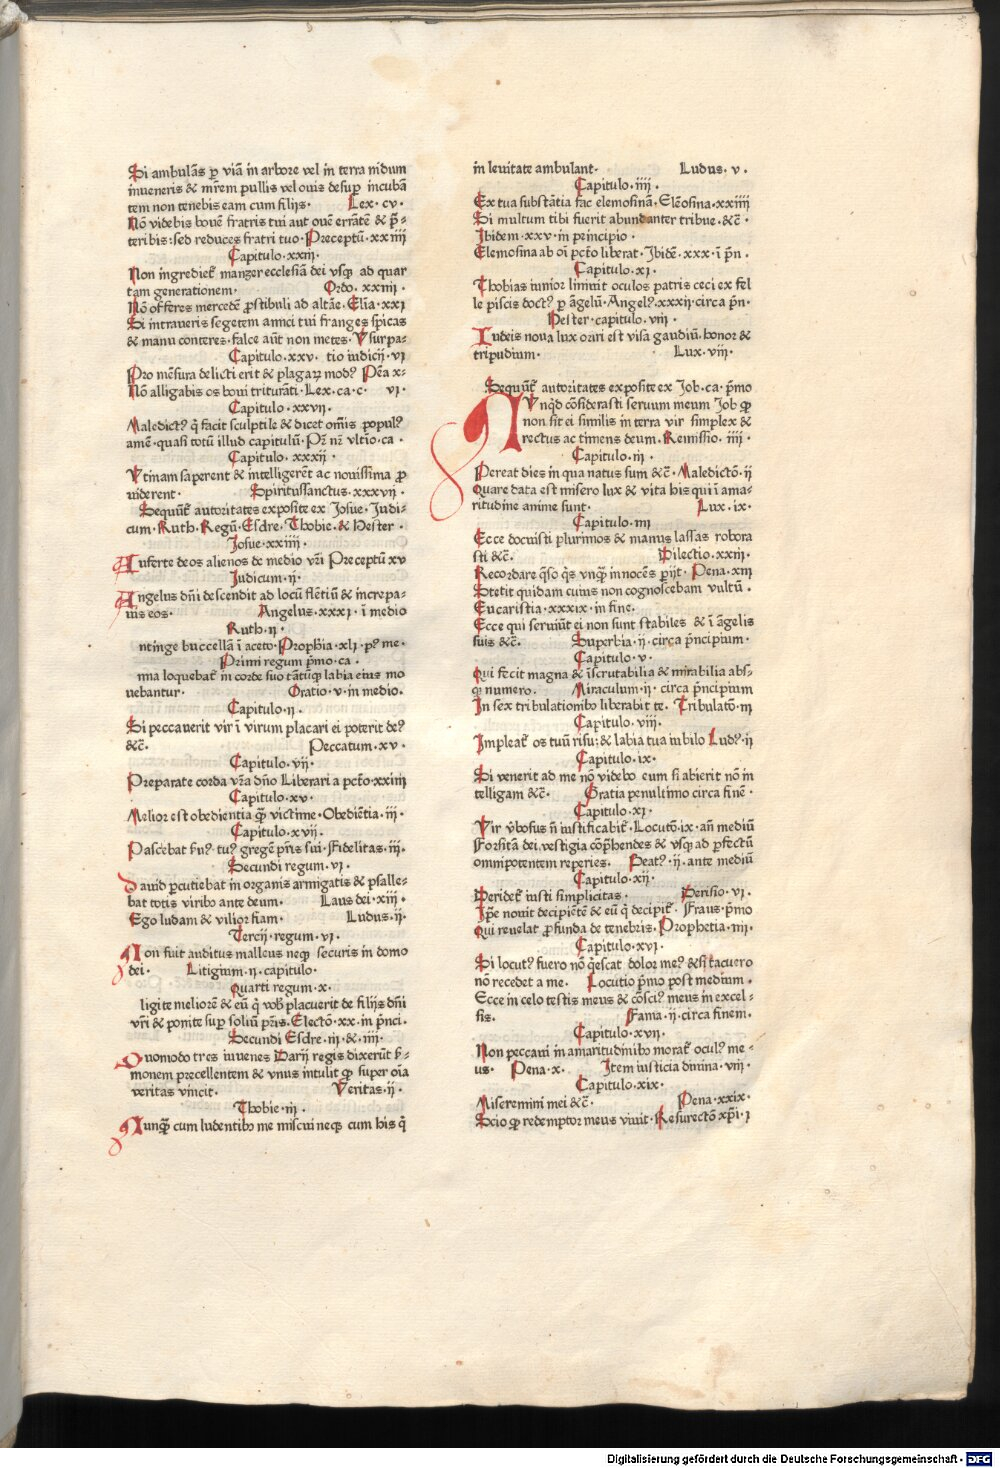 Si ambulās ꝑ viā in arbore vel in terra nidum
inueneris & mr̄em pullis vel ouis desuꝑ incubā
tem non tenebis eam cum filijs· Lex· cv·
Nō videbis bouē fratris tui aut ouē errātē & p̄-
teribis: sed reduces fratri tuo· Preceptū·xxiiij
Capitulo·xxiij·
Non ingredieƭ manzer ecclesiā dei vsqꝫ ad quar
tam generationem· Ordo·xxiiij·
Nō offeres mercedē ꝓstibuli ad altāe· Elīa·xxi
Si intraueris segetem amici tui franges spicas
& manu conteres·falce aūt non metes· Vsurpa-
Capitulo·xxv· tio iudicij·vi
Pro mēsura delicti erit & plagaꝝ modꝰ Pēa x·
Nō alligabis os boui triturāti·Lex·ca·c· vi·
Capitulo·xxvij·
Maledictꝰ q̄ facit sculptile & dicet om̄is populꝰ
amē·quasi totū illud capitulū·Pꝛ̄ nꝛ̄ vltīo·ca·
Capitulo·xxxij·
Vtinam saperent & intelligerēt ac nouissima ꝓ
uiderent· Spiritussanctus·xxxvij·
Sequūƭ autoritates exposite ex Josue·Judi-
cum·Ruth·Regū·Esdre·Thobie·& Hester·
Josue·xxiiij·
Auferte deos alienos de medio vr̄i Preceptū xv
Judicum·ij·
Angelus dn̄i descendit ad locū flētiū & increpa-
uis eos· Angelus·xxxi·ī medio
Ruth·ij·
ntinge buccellā ī aceto·Prophīa·xlj·pꝰ me·
Primi regum p̄mo·ca·
nna loquebaƭ in corde suo tātūqꝫ labia eius mo
uebantur· Oratio·v·in medio·
Capitulo·ij·
Si peccauerit vir ī virum placari ei poterit deꝰ
&c̄· Peccatum·xv·
Capitulo·vij·
Preparate corda vr̄a dn̄o Liberari a pctō·xxiiij
Capitulo·xv·
Melior est obedientia qꝫ victime·Obediētia·iij·
Capitulo·xvij·
Pascebat ẜuꝰ tuꝰ gregē pr̄is sui·Fidelitas·iij·
Secundi regum·vi·
Dauid ꝑcutiebat in organis armigatis & psalle-
bat totis viribꝰ ante deum· Laus dei·xiij·
Ego ludam & vilior fiam· Ludus·ij·
Tercij regum·vi·
Non fuit auditus malleus neqꝫ securis in domo
dei· Litigium·ij·capitulo·
Quarti regum·x·
ligite meliorē & eū q̄ vob̄ placuerit de filijs dn̄i
vr̄i & ponite suꝑ soliū pr̄is·Electō·xx·in p̄nci·
Secundi Esdre·iij·&·iiij·
Quomodo tres iuuenes Darij regis dixerūt ẜ-
monem precellentem & vnus intulit qꝫ super oīa
veritas vincit· Veritas·ij·
Thobie·iij·
Nunqꝫ cum ludentibꝰ me miscui neqꝫ cum his q̄
in leuitate ambulant· Ludus·v·
Capitulo·iiij·
Ex tua substātia fac elemosinā·Elēosina·xxiiij
Si multum tibi fuerit abundanter tribue·&c̄·
Ibidem·xxv·in principio·
Elemosina ab oī pctō liberat·Ibidē·xxx·ī p̄n·
Capitulo·xi·
Thobias iunior liniuit oculos patris ceci ex fel
le piscis doctꝰ ꝑ āgelū·Angelꝰ·xxxij·circa p̄n·
Hester·capitulo·viij·
Iudeis noua lux oriri est visa gaudiū·honor &
tripudium· Lux·viij·
Sequūƭ autoritates exposite ex Job·ca·p̄mo
NVnqd cōsiderasti seruum meum Job qꝫ
non sit ei similis in terra vir simplex &
rectus ac timens deum·Remissio·iiij·
Capitulo·iij·
Pereat dies in qua natus sum &c̄·Maledictō·ij
Quare data est misero lux & vita his qui ī ama-
ritudine anime sunt· Lux·ix·
Capitulo·iiij
Ecce docuisti plurimos & manus lassas robora
sti &c̄· Dilectio·xxiij·
Recordare q̄so q̄s vnqꝫ īnocēs ꝑijt· Pena·xij
Stetit quidam cuius non cognoscebam vultū·
Eucaristia·xxxix·in fine·
Ecce qui seruiūt ei non sunt stabiles & ī āgelis
suis &c̄· Superbia·ij·circa p̄ncipium·
Capitulo·v·
Qui fecit magna & īscrutabilia & mirabilia abs-
qꝫ numero· Miraculum·ij·circa p̄ncipium
In sex tribulationibꝰ liberabit te·Tribulatō·iij
Capitulo·viij·
Impleaƭ os tuū risu:& labia tua iubilo Ludꝰ·ij
Capitulo·ix·
Si venerit ad me nō videbo eum si abierit nō in
telligam &c̄· Gratia penultimo circa finē·
Capitulo·xi·
Vir v̄bosus n̄ iustificabiƭ·Locutō·ix·an̄ mediū
Forsitā dei vestigia cōp̄hendes & vsqꝫ ad ꝑfectū
omnipotentem reperies· Beatꝰ·ij·ante mediū
Capitulo·xij·
Derideƭ iusti simplicitas· Derisio·vi·
Ip̄e nouit decipiētē & eū q̄ decipiƭ·Fraus·p̄mo
Qui reuelat ꝓfunda de tenebris·Prophetia·iiij·
Capitulo·xvi·
Si locutꝰ fuero nō q̄escat dolor meꝰ &si tacuero
nō recedet a me· Locutio p̄mo post medium·
Ecce in celo testis meus & cōsciꝰ meus in excel-
sis· Fama·ij·circa finem·
Capitulo·xvij·
Non peccaui in amaritudinibꝰ moraƭ oculꝰ me-
us· Pena·x· Item iusticia diuina·viij·
Capitulo·xix·
Miseremini mei &c̄· Pena·xxix·
Scio qꝫ redemptor meus viuit·Resurectō xp̄i·i
Digitalisierung gefördert durch die Deutsche Forschungsgemeinschaft - DFG